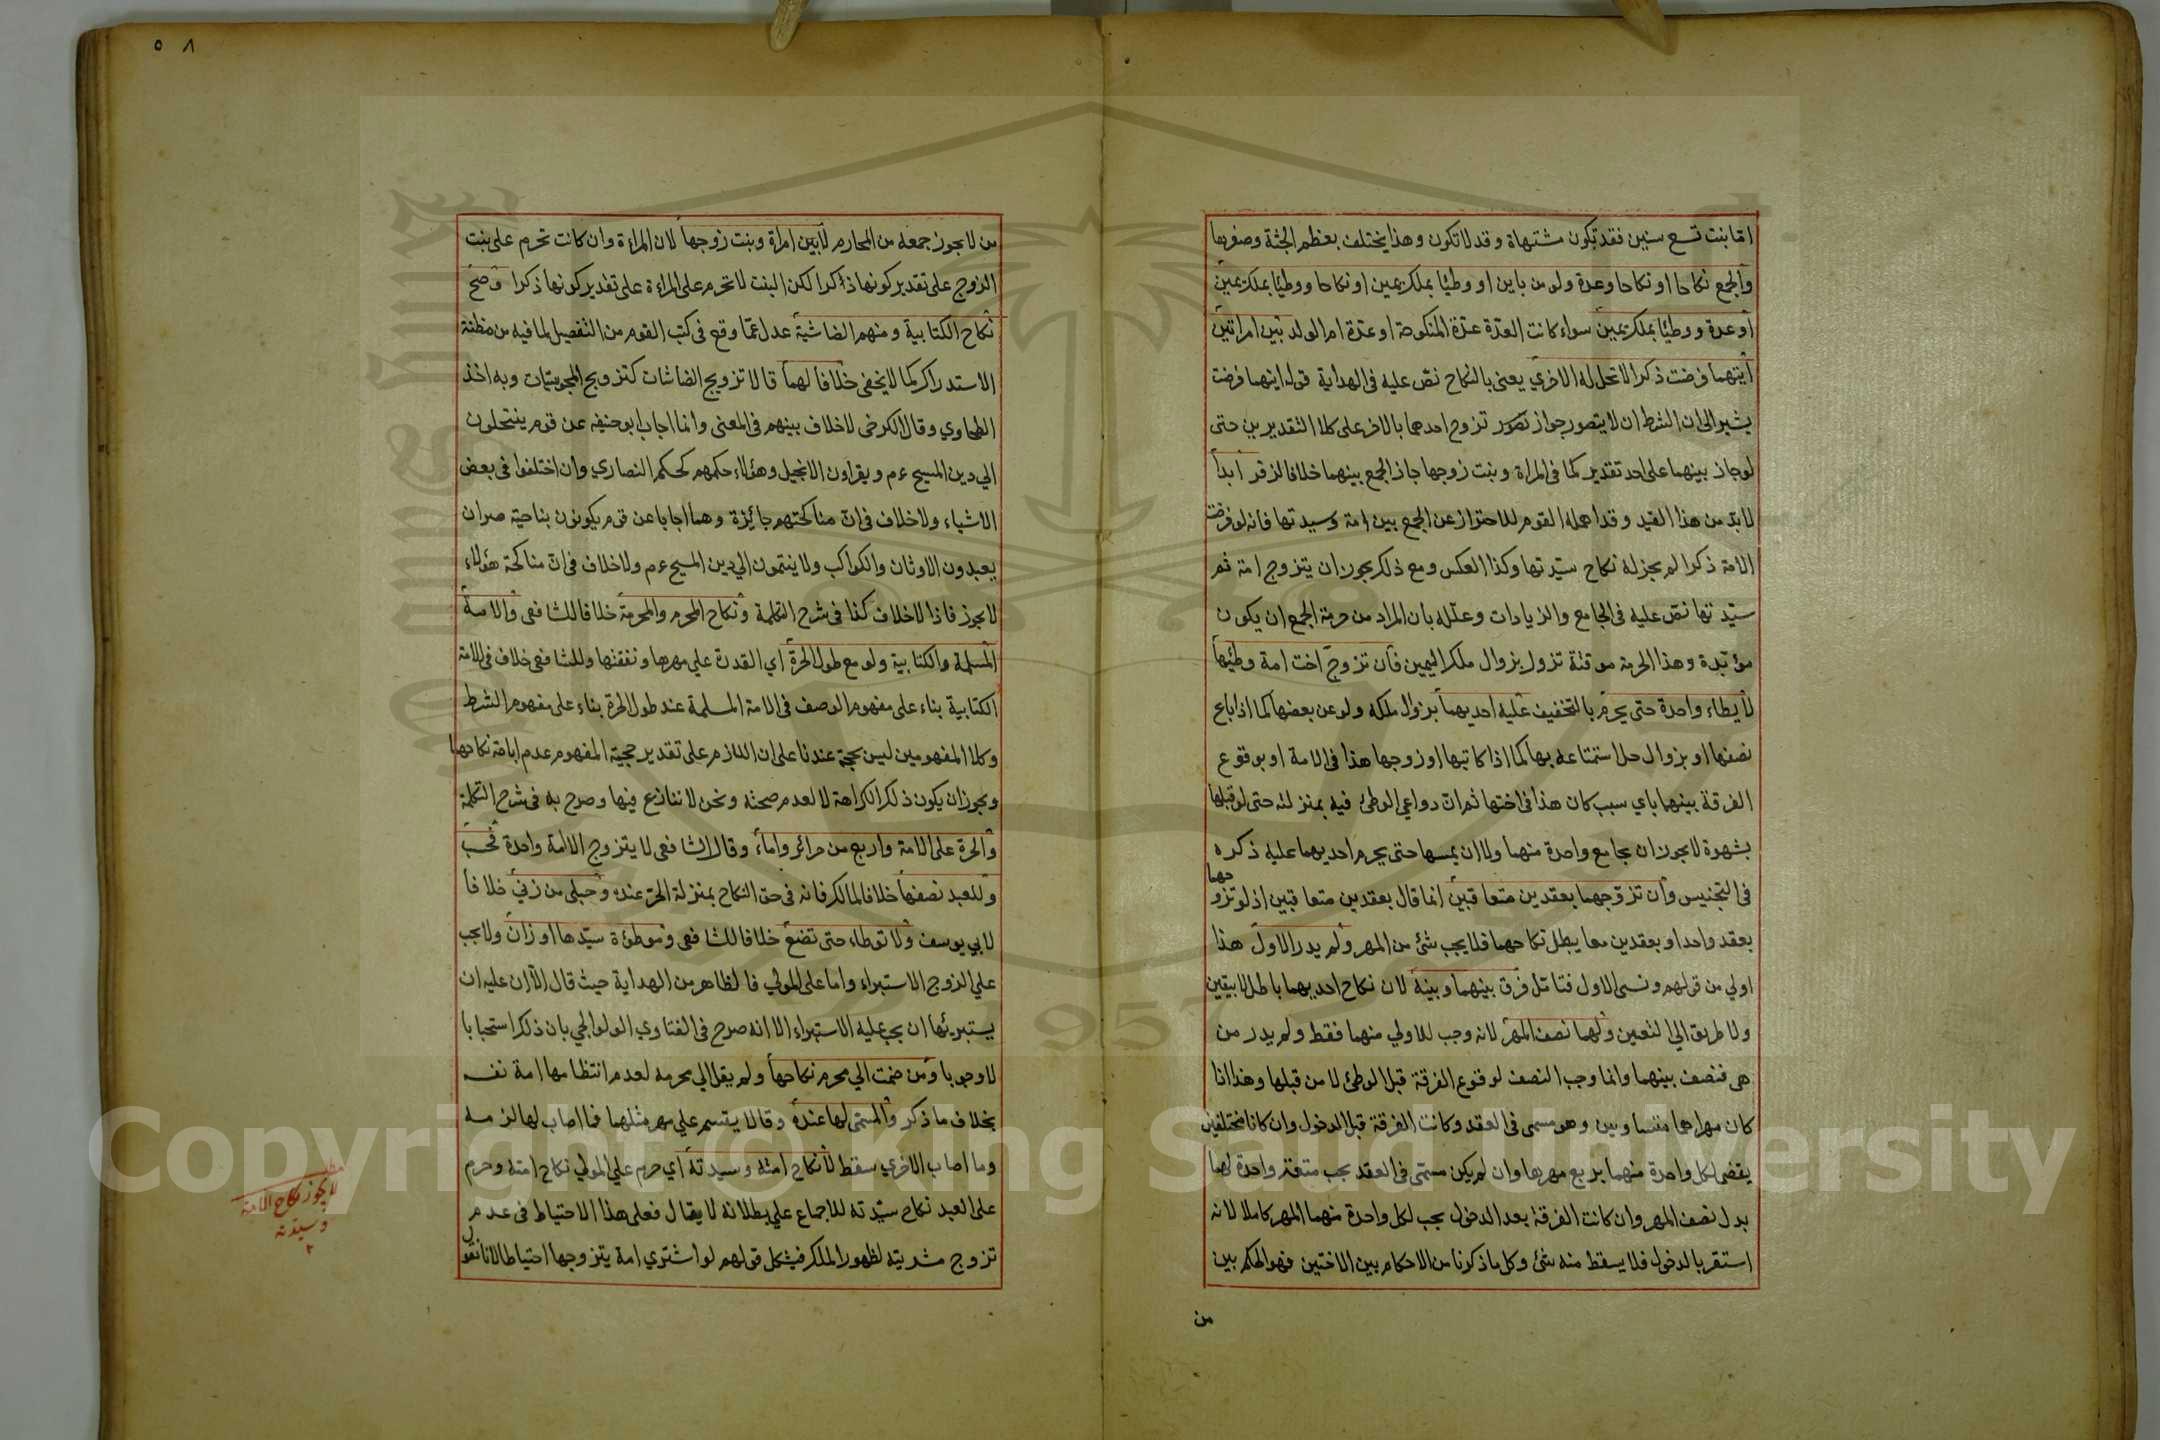 اما بنت تسع سنين فقد تكون مشتهاة وقد لا تكون وهذا يختلف بعظم الجثة وصغرها
والجمع نكاحا او نكاحا وعدة ولو من باين او وطيًا بملك يمين او نكاحا ووطيًا بملك يمين
او عدة ووطيًا بملك يمين سواء كانت العدّة عدّة المنكوحة او عدّة ام الولد بين امراتين
ايتهما فرضت ذكرا لا تحل له الاخري يعني بالنكاح نصّ عليه في الهداية قوله ايتهما فرضت
يشير الى ان الشرط ان لا يتصور جواز تصور تزوج احدهما بالاخر على كلا التقديرين حتى
لو جاز بينهما على احد تقدير كما في المراة وبنت زوجها جاز الجمع بينهما خلافا لزفر ابدا
لا بدّ من هذا القيد وقد اهمله القوم للاحتراز عن الجمع بين امة وسيدتها فانه لو فرضت
الامة ذكرا لم يجز له نكاح سيّدتها وكذا العكس ومع ذلك يجوز ان يتزوج امة ثم
سيّدتها نصّ عليه في الجامع والزيادات وعلّله بان المراد من حرمة الجمع ان يكون
مؤبّدة وهذا الحرمة موقتة تزول بزوال ملك اليمين فان تزوج اخت امة وطئها
لا يطاء واحدة حتى يحرم بالتخفيف عليه احديهما بزوال ملكه ولو عن بعضها كما اذا باع
نصفها او بزوال حل استمتاعه بها كما اذا كاتبها او زوجها هذا في الامة او بوقوع
الفرقة بينهما باي سبب كان هذا في اختها ثم انّ دواعي الوطئ فيه بمنزلته حتى لو قبلها
بشهوة لا يجوز ان يجامع واحدة منهما ولا ان يمسها حتى يحرم احديهما عليه ذكره
في التجنيس وان تزوّجهما بعقدين متعاقبين انما قال بعقدين متعاقبين اذ لو تزوجهما
بعقد واحد او بعقدين معا يبطل نكاحهما فلا يجب شئ من المهر ولم يدر الاول هذا
اولي من قولهم ونسى الاول فتامّل فرق بينهما وبينه لان نكاح احديهما باطل بيقين
ولا طريق الي التعين ولهما نصف المهر لانه وجب للاولي منهما فقط ولم يدر من
هي فنصف بينهما وانما وجب النصف لوقوع الفرقة قبل الوطئ لا من قبلها وهذا اذا
كان مهراهما متساويين وهو مسمى في العقد وكانت الفرقة قبل الدخول وان كانا مختلفين
يقضى لكل واحدة منهما بربع مهرها وان لم يكن مسمّى في العقد يجب متعة واحدة لهما
بدل نصف المهر وان كانت الفرقة بعد الدخول يجب لكل واحدة منهما المهر كاملا لانه
استقر بالدخول فلا يسقط منه شئ وكل ما ذكرنا من الاحكام بين الاختين فهو الحكم بين
من
٥٨
من لا يجوز جمعه من المحارم لا بين امراة وبنت زوجها لان المراءة وان كانت تحرم على بنت
الزوج على تقدير كونها ذكرا لكن البنت لا تحرم على المراءة على تقدير كونها ذكرا وصح
نكاح الكتابية ومنهم الصّابئية عدل عمّا وقع في كتب القوم من التفصيل لما فيه من مظنة
الاستدراك كما لا يخفى خلافا لهما قالا تزويج الصابئات كتزويج المجوسيّات وبه اخذ
الطحاوي وقال الكرخى لا خلاف بينهم في المعنى وانما اجاب ابو حنيفه عن قوم ينتحلون
الي دين المسيح ء م ويقراون الانجيل وهؤلاء حكمهم كحكم النصاري وان اختلفوا في بعض
الاشياء ولا خلاف في انّ مناكحتهم جايزة وهما اجابا عن قوم يكونون بناحية حران
يعبدون الاوثان والكواكب ولا ينتمون الي دين المسيح ء م ولا خلاف في انّ مناكحة هؤلاء
لا يجوز فاذا لا خلاف كذا في شرح التكلمة ونكاح المحرم والمحرمة خلافا للشافعى والامة
المسلمة والكتابية ولو مع طول الحرة اي القدرة على مهرها ونفقتها وللشافعى خلاف في الامة
الكتابية بناء على مفهوم الوصف في الامة المسلمة عند طول الحرة بناء على مفهوم الشرط
وكلا المفهومين ليس بحجة عندنا على ان اللازم على تقدير حجية المفهوم عدم اباحة نكاحها
ويجوز ان يكون ذلك لكراهة لا لعدم صحته ونحن لا ننازع فيها وصرح به في شرح التكلمة
والحرة على الامة واربع من حرائر واماء وقال الشافعى لا يتزوج الا امة واحدة فحسب
وللعبد نصفها خلافا لمالك فانه في حق النكاح بمنزلة الحرّ عنده وحبلى من زنى خلافا
لابي يوسف ولا توطاء حتى تضع خلافا للشافعى وموطوءة سيّدها او زان ولا يجب
علي الزوج الاستبراء واما على المولي فالظاهر من الهداية حيث قال الّا ان عليه ان
يستبرئها ان يجب عليه الاستبراء الا انه صرح في الفتاوي الولوالجي بان ذلك استحبابا
لا وجوبا ومن ضمت الي محرم نكاحها ولم يقل الي محرمه لعدم انتظامها امة نفسه
بخلاف ما ذكر والمسمّى لها عنده وقالا يقسم علي مهر مثلهما فما اصاب لها لزمه
وما اصاب الاخري سقط لا نكاح امته وسيدته اي حرم علي المولي نكاح امته وحرم
على العبد نكاح سيّدته للاجماع علي بطلانه لا يقال فعلى هذا الاحتياط في عدم
تزوج مشريته لظهور الملك فيشكل قولهم لو اشتري امة يتزوجها احتياطا لانا نقول
مطلب
لا يجوز نكاح الامة
وسيدته
Copyright © King Saud University
957